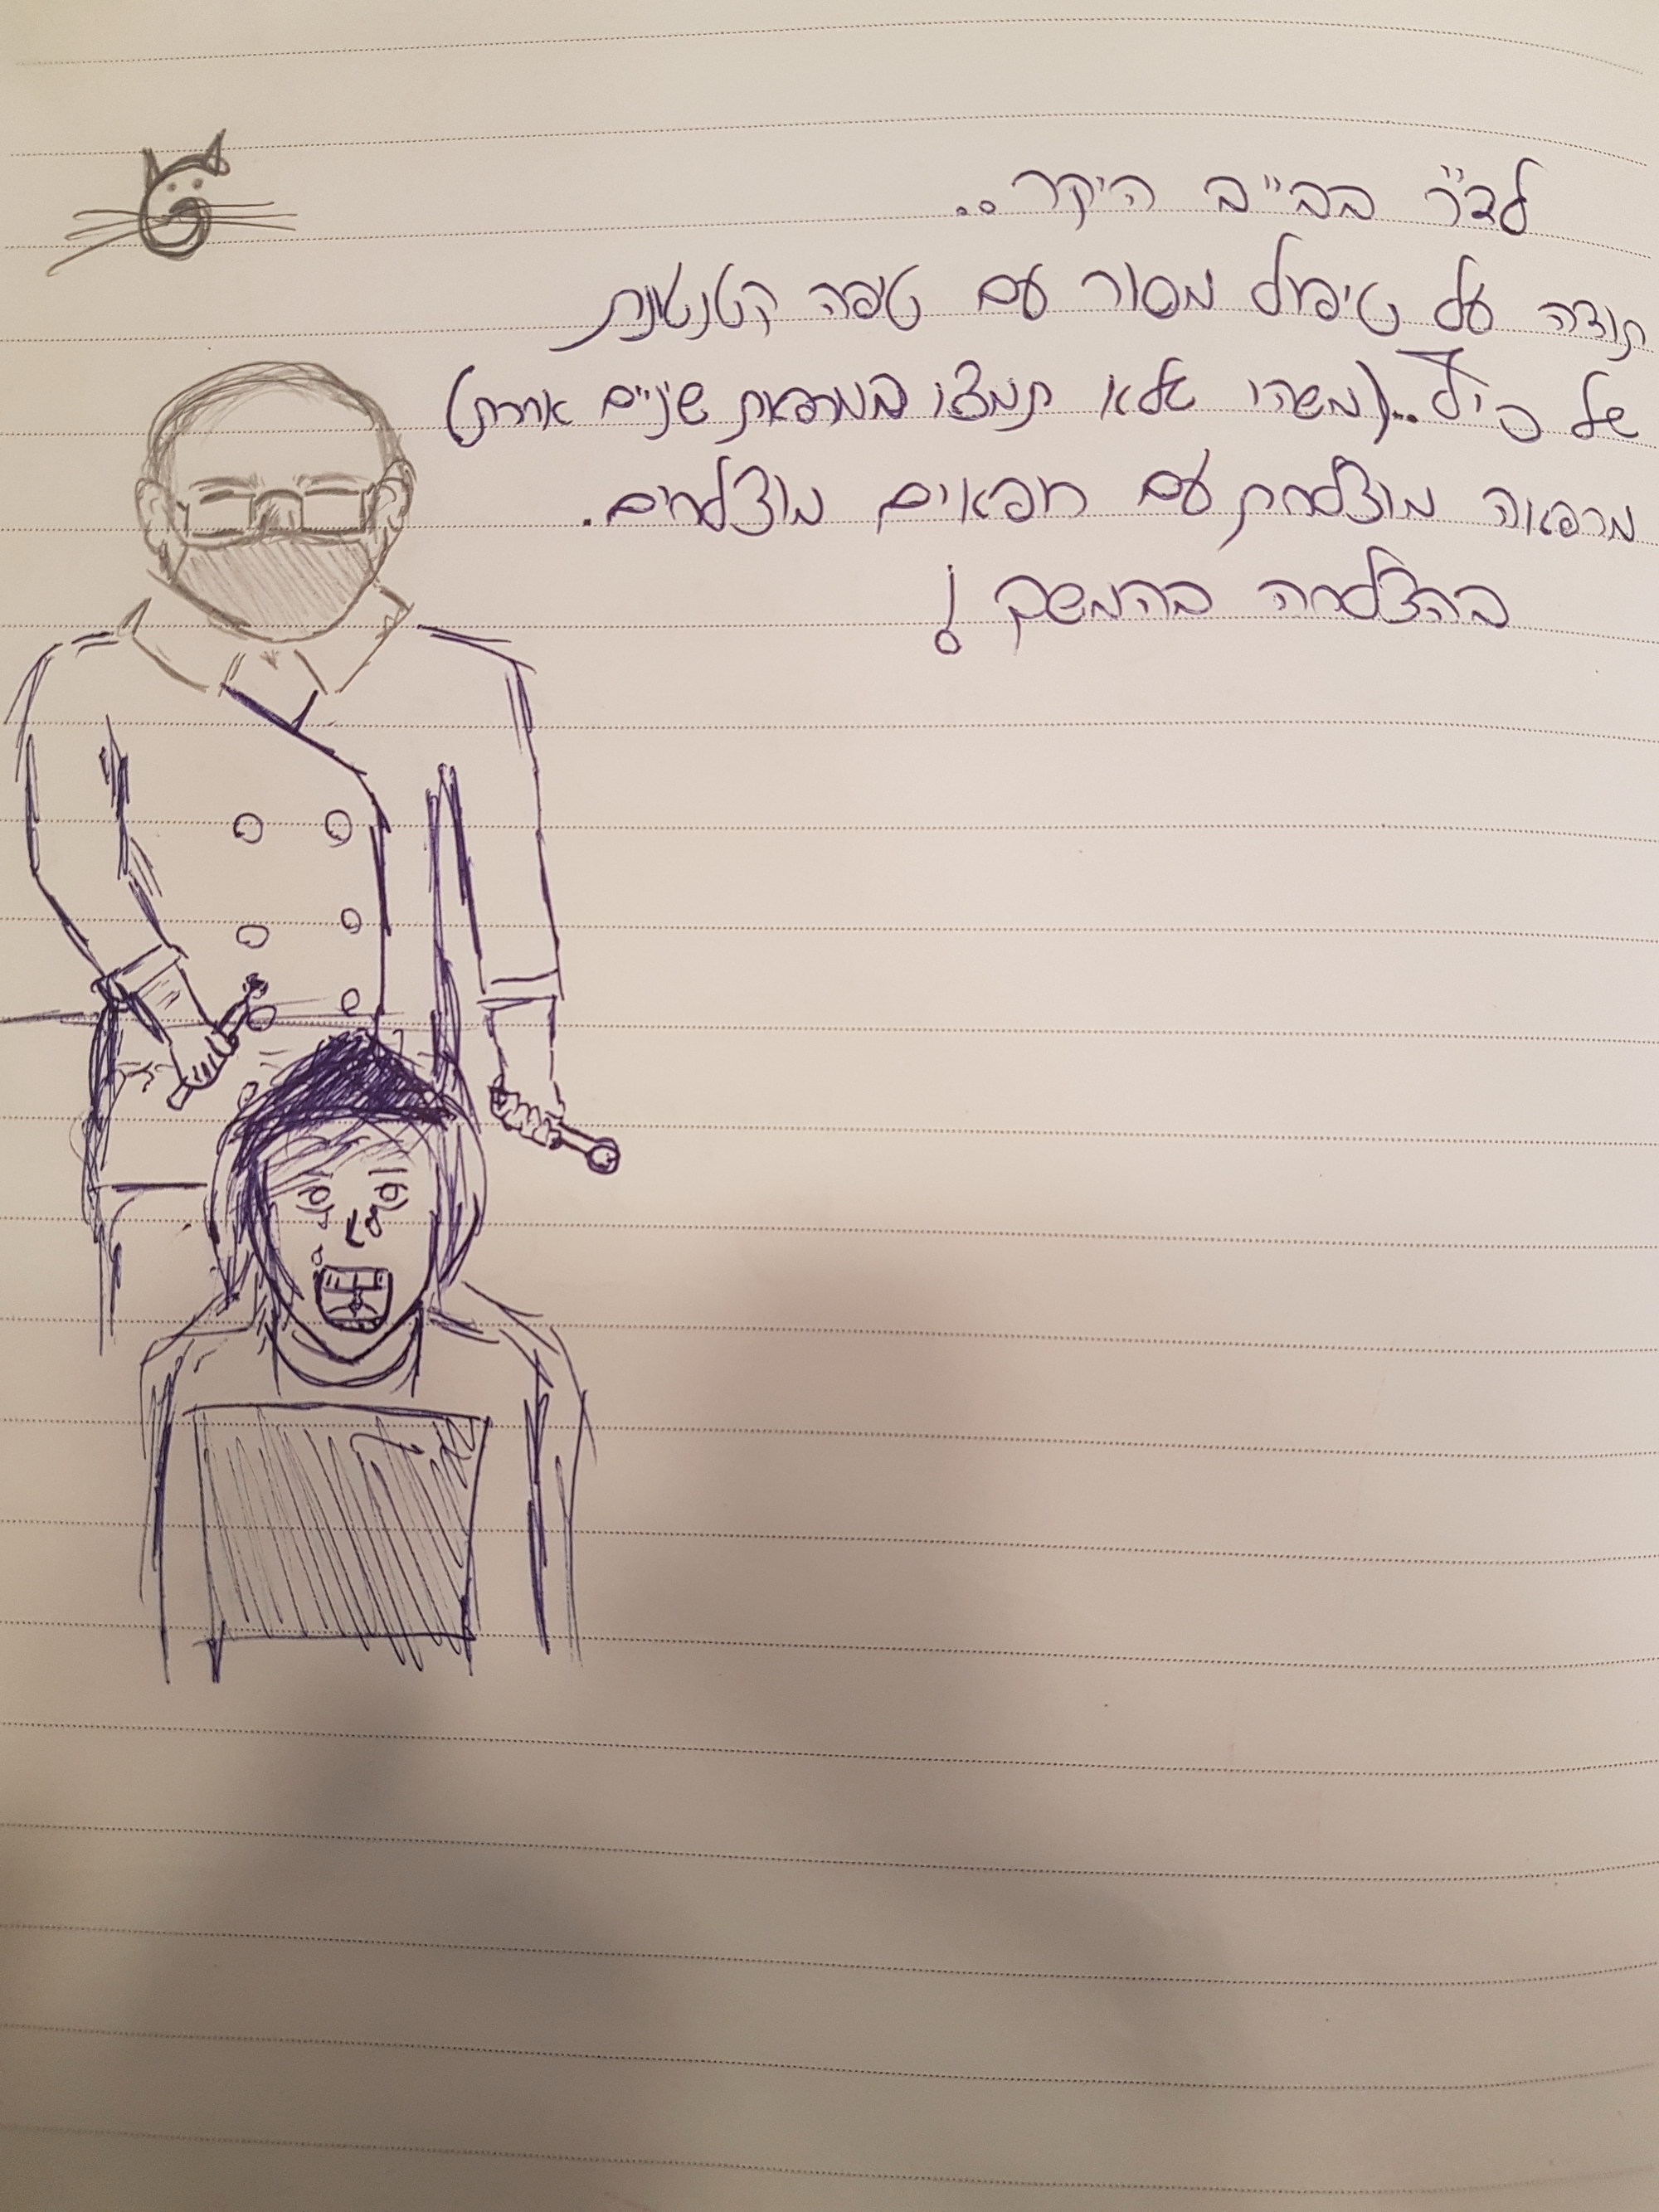 לד"ר בב"ב היקר..
תודה על טיפול מסור עם טיפה קטנטונת
של כיף..(משהו שלא תמצאו במרפאת שיניים אחרת)
מרפאה מוצלחת עם רופאים מוצלחים.
בהצלחה בהמשך!